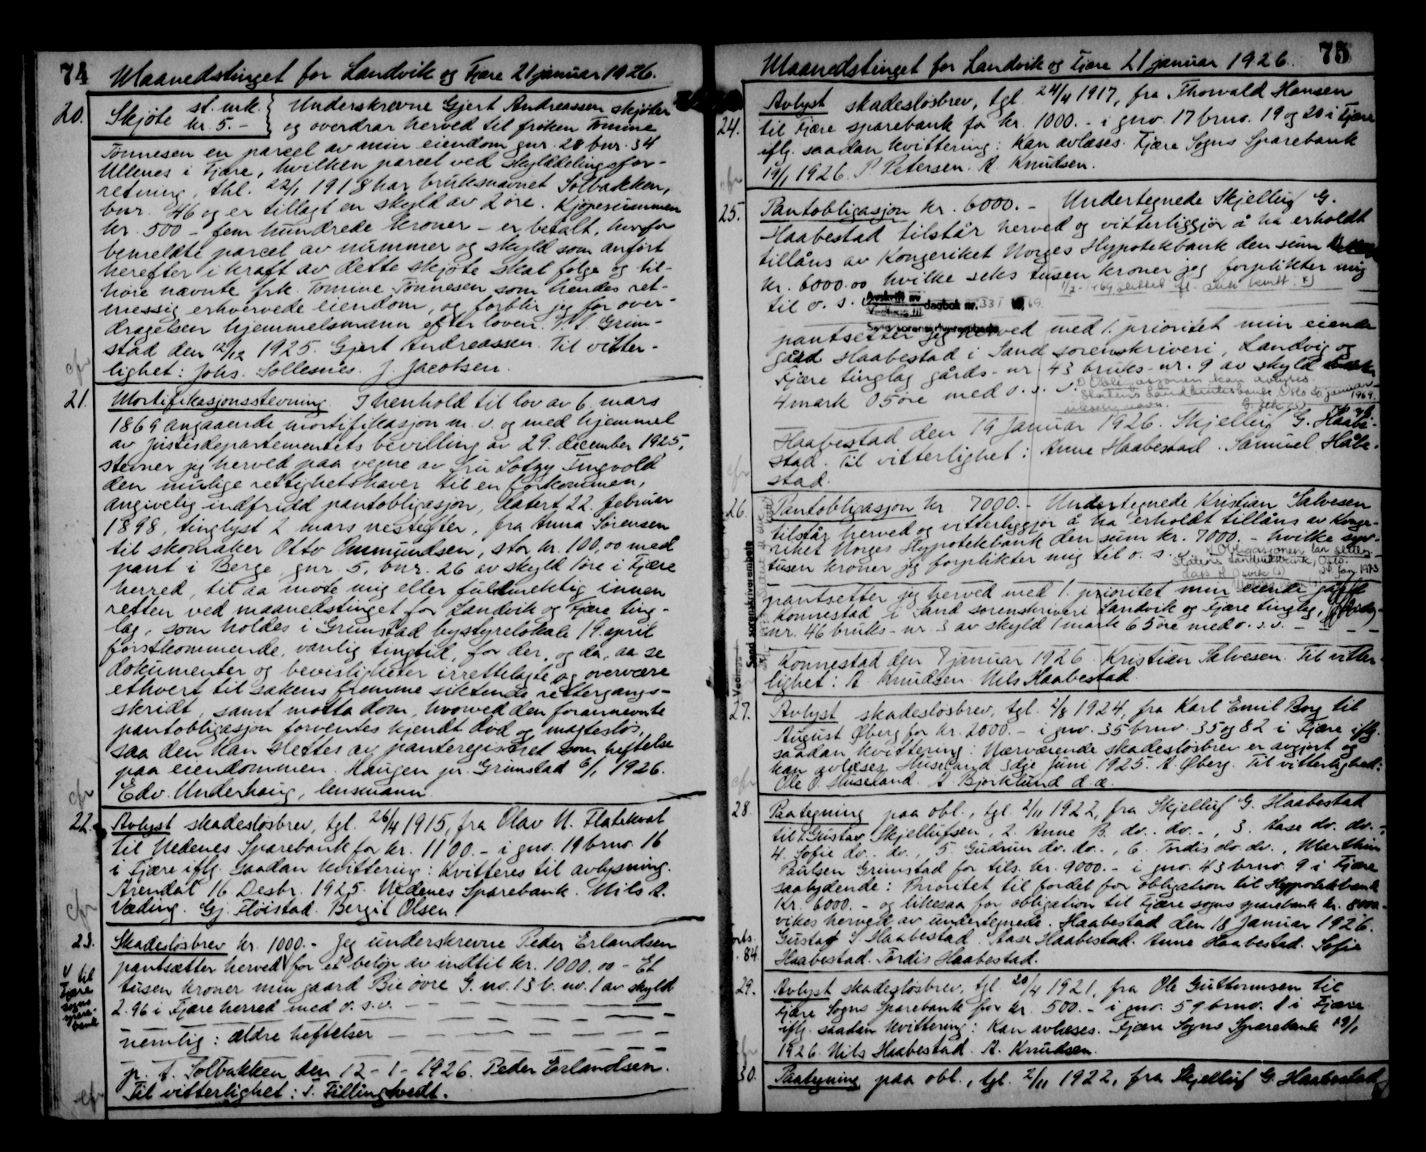 74
Maanedstinget for Landvik og Fjære 21 januar 1926.
20.
Skjøte st. mrk. kr. 5.-
Underskrevne Gjert Andreassen skjøter
og overdrar herved til frøken Tomine
Tønnesen en parcel av min eiendom gnr. 28 bnr. 34
Ullenes i Fjære, hvilken parcel ved skylddelingsfor-
retning, thl. 22/1 1918 har bruksnavnet Solbakken,
bnr. 46 og er tillagt en skyld av 2 øre. Kjøpesummen
kr. 500 - fem hundrede kroner - er betalt, hvorfor
bemeldte parcel av nummer og skyld som anført
herefter i kraft av dette skjøte skal følge og til-
høre nævnte frk. Tomine Tønnesen som hendes ret-
messig erhvervede eiendom, og forblir jeg for over-
dragelsen hjemmelsmann efter loven. Grim-
stad den 12/12 1925. Gjert Andreassen. Til vitter-
lighet: Johs. Sollesnes. J. Jacobsen.
21.
Mortifikasjonsstevning. I henhold til lov av 6. mars
1869 angaaende mortifikasjon m. v. og med hjemmel
av justisdepartementets bevilling av 29. december 1925,
stevner jeg herved paa vegne av fru Lovgy Tingvold
den mulige rettighetshaver til en forkommen,
angivelig indfridd pantobligasjon, datert 22. februar
1898, tinglyst 2 mars nestefter, fra Anna Sørensen
til skomaker Otto Ommundsen, stor kr. 100,00 med
pant i Berge, gnr. 5, bnr. 26 av skyld 1 øre i Fjære
herred, til aa møte mig eller fuldmektig innen
retten ved maanedstinget for Landvik og Fjære ting-
lag, som holdes i Grimstad bystyrelokale 19. april
førstkommende, vanlig tingtid, for der, og da, aa se
dokumenter og bevisligheter irrettelagte og overvære
ethvert til sakens fremme siktende rettergangs-
skridt, samt motta dom, hvorved den forannevnte
pantobligasjon forventes kjendt død og magtesløs,
saa den kan slettes av panteregisteret som heftelse
paa eiendommen. Haugen pr. Grimstad 6/1 1926.
Edv. Underhaug, lensmann
22.
Avlyst skadesløsbrev, tgl. 26/4 1915, fra Olav N. Flatekval
til Nedenes Sparebank for kr. 1100.- i gno. 19 brno. 16
i Fjære iflg. saadan kvittering: Kvitteres til avlysning.
Arendal 16 Desbr. 1925. Nedenes Sparebank. Nils A.
Væding. Gj. Fløistad. Bergit Olsen
23.
Skadesløsbrev kr. 1000.- Jeg underskrevne Peder Erlandsen
pantsætter herved V for et beløp av indtil kr. 1000,00 - Et
tusen kroner min gaard Bie øvre G. no. 13 b. no. 1 av skyld
2.96 i Fjære herred med o. s. v.
V til
Fjære
sogns
spare-
bank
nemlig: ældre heftelser
p. t. Solbakken den 12 - 1 - 1926. Peder Erlandsen.
Til vitterlighet: T. Fillingtvedt.
75
Maanedstinget for Landvik og Fjære 21 januar 1926.
24.
Avlyst skadesløsbrev, tgl. 24/4 1917, fra Thorvald Hansen
til Fjære sparebank for kr. 1000.- i gno. 17 brno. 19 og 20 i Fjære
iflg. saadan kvittering: Kan avlæses. Fjære Sogns Sparebank
19/1 1926. P. Petersen. A. Knudsen.
25.
Pantobligasjon kr. 6000.- Undertegnede Skjelluf G.
Haabestad tilstår herved og vitterliggjør å ha erholdt
tillåns av Kongeriket Norges Hypotekbank den sum
kr. 6000.00 hvilke seks tusen kroner jeg forplikter mig
til o. s. v.
Avskrift av
dagbok nr. 331
pantsetter jeg herved med 1. prioritet min eiende
gård Haabestad i Sand sorenskriveri, Landvig og
Fjære tinglag gårds-nr. 43 bruks-nr. 9 av skyld
4 mark 05 øre med o. s. v.
Haabestad den 19 januar 1926. Skjelluf G. Haabe-
stad. Til vitterlighet: Anne Haabestad. Samuel Håbe-
stad.
26.
Pantobligasjon kr. 7000.- Undertegnede Kristian Salvesen
tilstår herved og vitterliggjør å ha erholdt tillåns av Konge-
riket Norges Hypotekbank den sum kr. 7000.- hvilke syv
tusen kroner jeg forplikter mig til o. s. v.
Sand sorenskriverembete
pantsetter jeg herved med 1. prioritet min eiende gård
Konnestad i Sand sorenskriveri Landvik og Fjære tinglag, gårds-
nr. 46 bruks-nr. 3 av skyld 1 mark 65 øre med o. s. v.
Konnestad den 7 januar 1926. Kristian Salvesen. Til vitter-
lighet: A. Knudsen. Nils Haabestad.
27.
Avlyst skadesløsbrev, tgl. 2/8 1924, fra Karl Emil Borg til
August Øberg for kr. 2000.- i gno. 35 brno. 35 og 82 i Fjære iflg.
saadan kvittering: Nærværende skadesløsbrev er avgjort og
kan avlæses. Huseland 3dje Juni 1925. A. Øberg. Til vitterlighed:
Ole O. Huseland. A Bjorklund d.æ.
28.
Paategning paa obl., tgl. 2/11 1922, fra Skjelluf G. Haabestad
til 1 Gustav Skjellufsen, 2. Anne B. do. do., 3. Aase do. do.
4. Sofie do. do., 5 Gudrun do. do., 6. Tordis do. do., Marthin
Paulsen Grimstad for tils. kr. 9000.- i gno. 43 brno. 9 i Fjære
saalydende: Prioritet til fordel for obligation til Hypotekbank
kr. 6000.- og likesaa for obligation til Fjære sogns sparebank kr. 8000.-
vikes herved av undertegnede. Haabestad den 18 Januar 1926.
Gustav S. Haabestad. Aase Haabestad. Anne Haabestad. Sofie
Haabestad. Tordis Haabestad.
29.
Avlyst skadesløsbrev, tgl. 20/4 1921, fra Ole Guttormsen til
Fjære Sogns Sparebank for kr. 500.- i gno. 59 brno. 8 i Fjære
iflg. saadan kvittering: Kan avlæses. Fjære Sogns Sparebank 19/1
1926. Nils Haabestad. A. Knudsen.
30.
Paategning paa obl., tgl. 2/11 1922, fra Skjelluf G. Haabestad